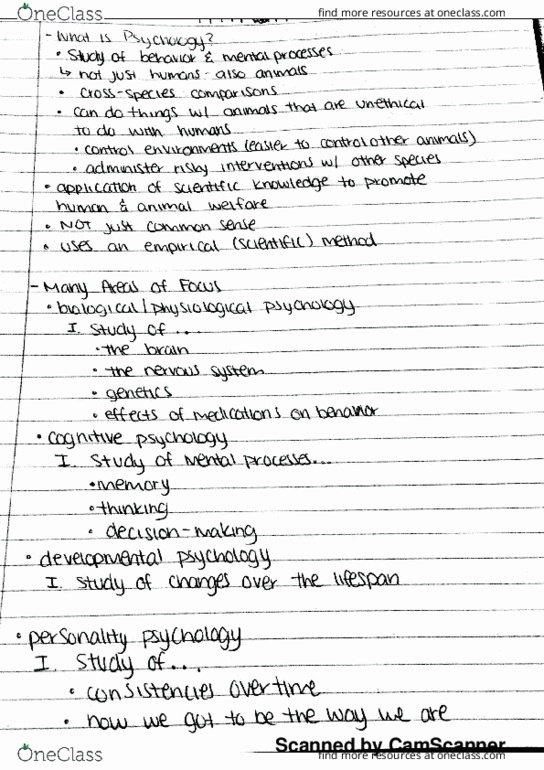 OneClass
find more resources at oneclass.com
- What is Psychology?
• Study of behavior & mental processes
↳ not just humans - also animals
• cross-species comparisons
• can do things w/ animals that are unethical
to do with humans
• control environments (easier to control other animals)
• administer risky interventions w/ other species
• application of scientific knowledge to promote
human & animal welfare
• NOT just common sense
• uses an empirical (scientific) method
- Many Areas of Focus
• biological/physiological psychology
I. Study of ...
• the brain
• the nervous system
• genetics
• effects of medications on behavior
• cognitive psychology
I. Study of mental processes...
• memory
• thinking
• decision-making
• developmental psychology
I. Study of changes over the lifespan
• personality psychology
I. Study of...
• consistencies overtime
• how we got to be the way we are
Scanned by CamScanner
OneClass
find more resources at oneclass.com